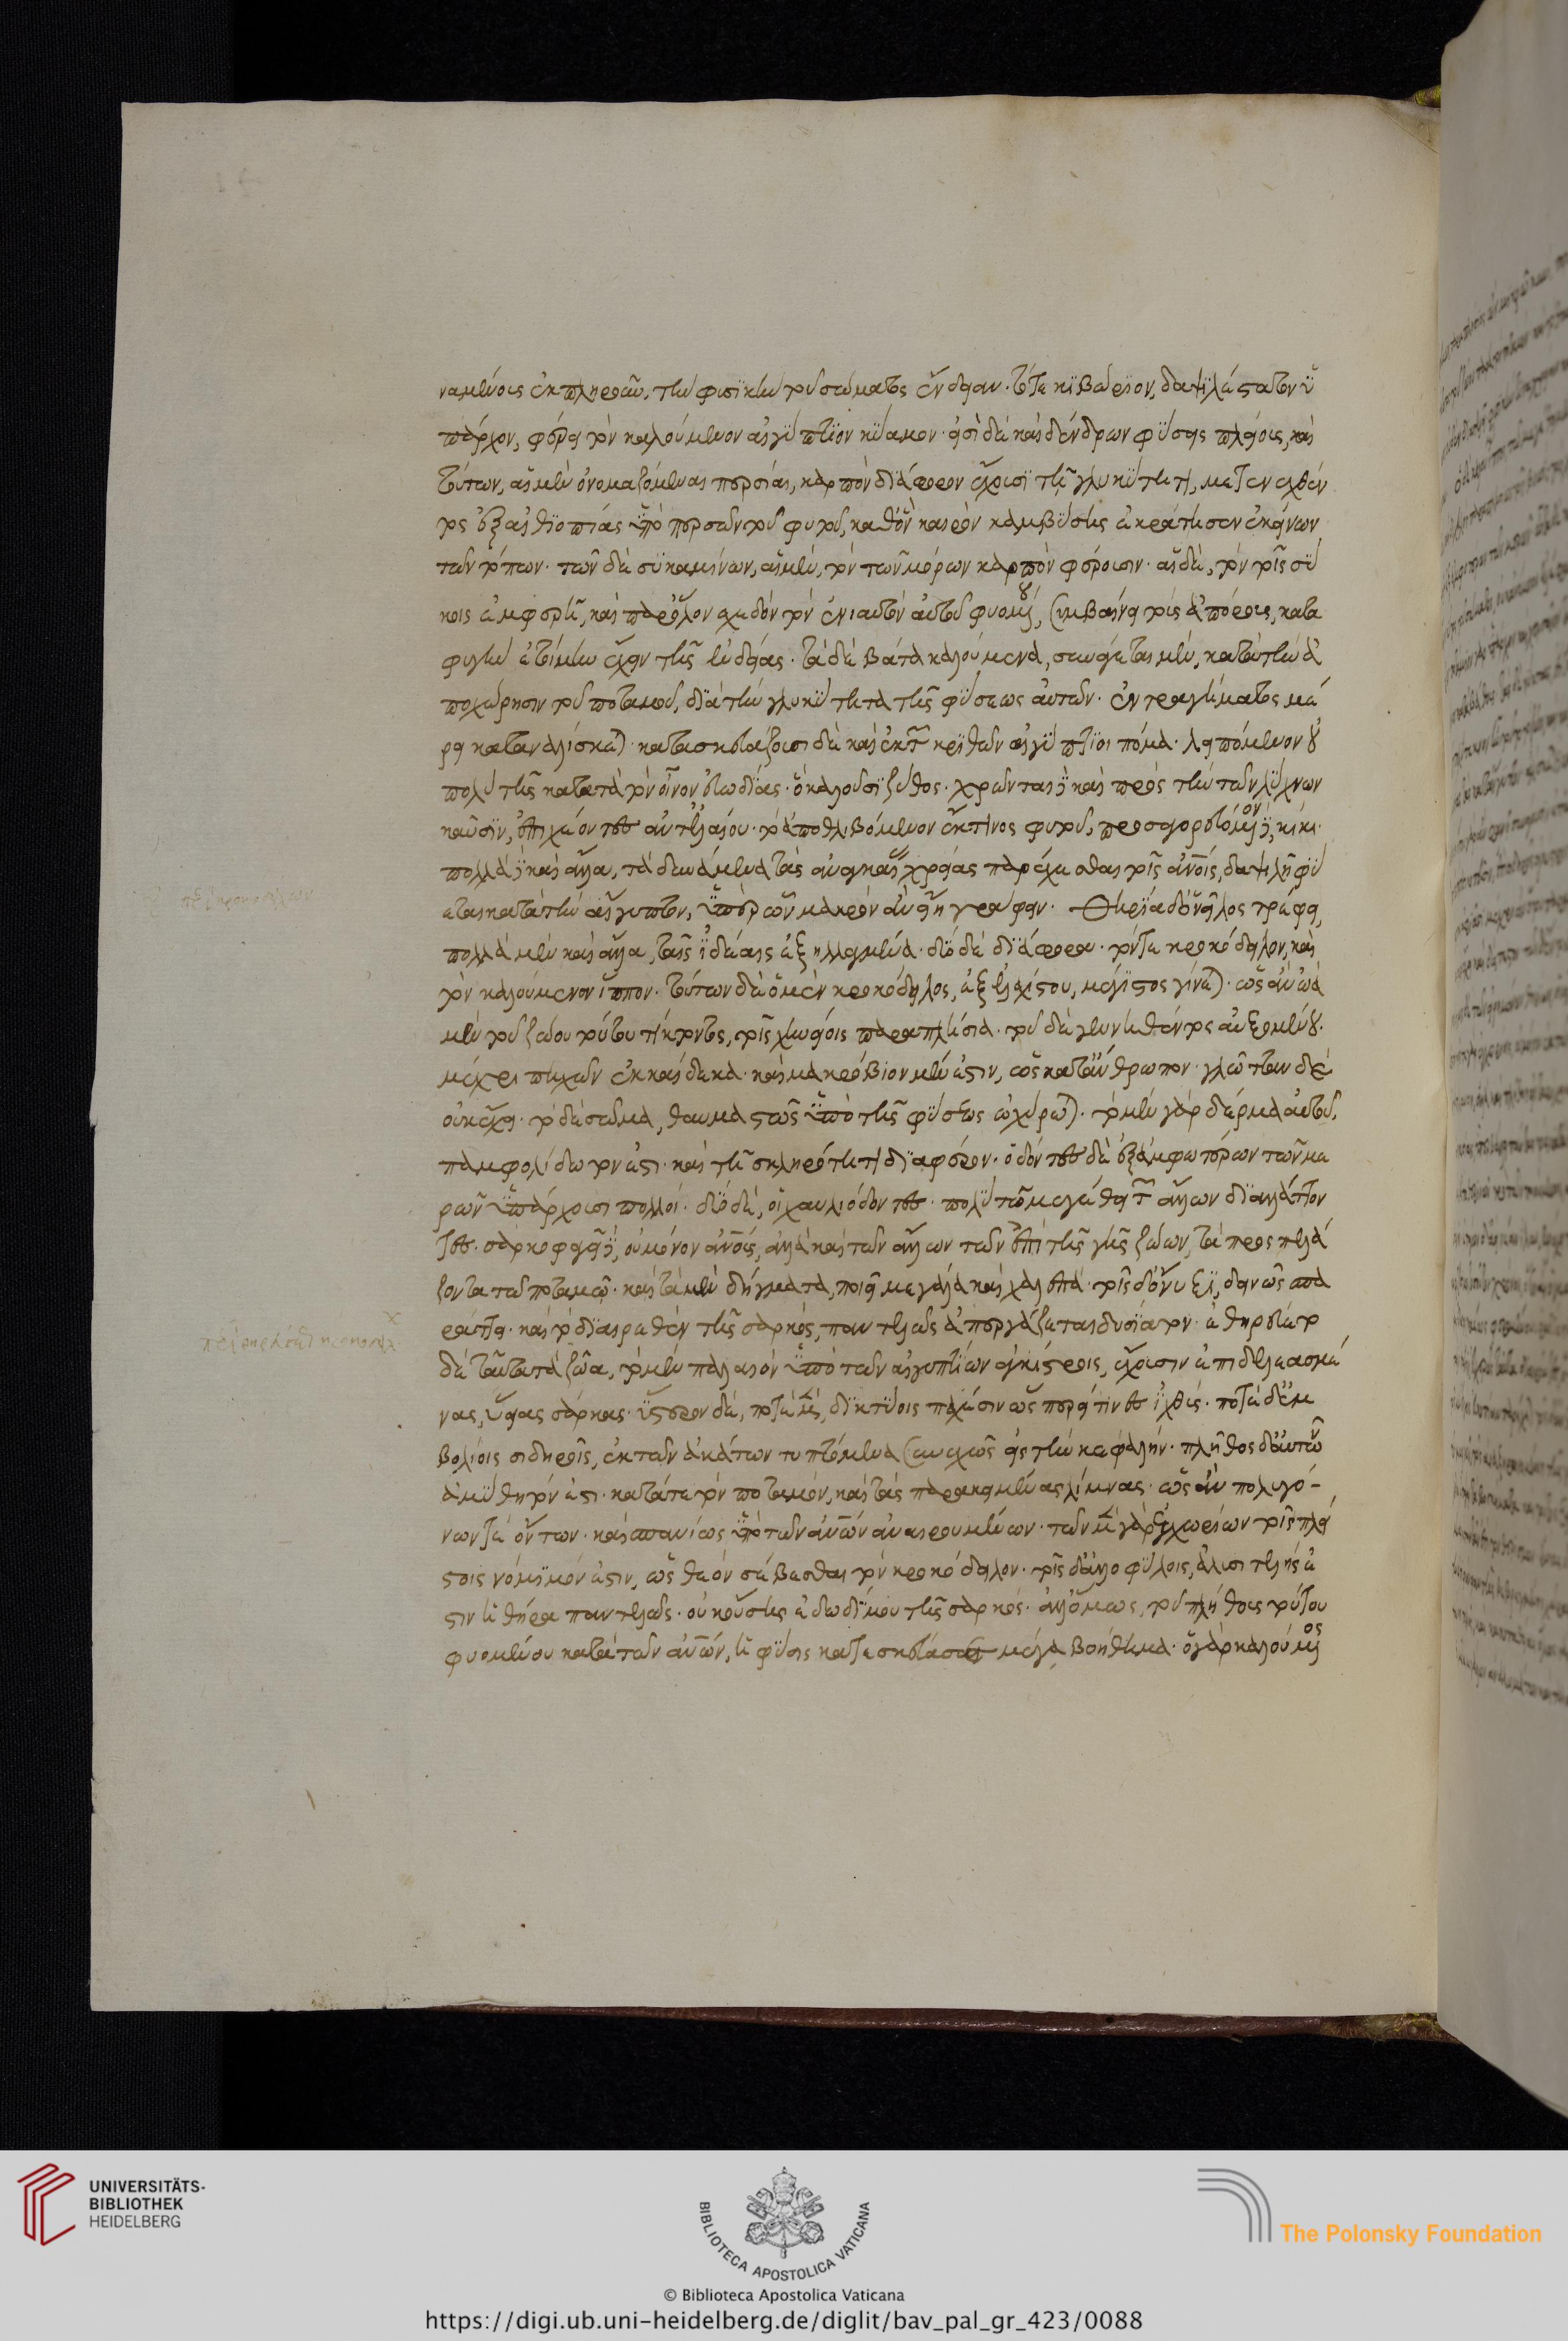 ναμένοις ἐκπληροῦν, τὴν φυσικὴν τοῦ σώματος ἔνδειαν. τό τε κιβώριον, δαψιλέστατον ὑ
πάρχον, φέρει τὸν καλούμενον αἰγύπτιον κύαμον. εἰσὶ δὲ καὶ δένδρων φύσεις πλείοις, καὶ
τούτων, αἱ μὲν ὀνομαζόμεναι περσίαι, καρπὸν διάφορον ἔχουσι τῇ γλυκύτητι, μετενεχθέν
τος ἐξ αἰθιοπίας ὑπὸ περσῶν τοῦ φυτοῦ, καθ' ὃν καιρὸν καμβύσης ἐκράτησεν ἐκείνων
τῶν τόπων. τῶν δὲ συκαμίνων, αἱ μὲν, τὸν τῶν μόρων καρπὸν φέρουσιν. αἱ δὲ, τὸν τοῖς σύ
κοις ἐμφερῆ, καὶ παρ' ὅλον σχεδὸν τὸν ἐνιαυτὸν αὐτοῦ φυομένου, συμβαίνει τοῖς ἀπόροις, κατα
φυγὴν ἑτοίμην ἔχειν τῆς ἐνδείας. τὰ δὲ βάτα καλούμενα, συνάγεται μὲν, κατὰ τὴν ἀ
ποχώρησιν τοῦ ποταμοῦ, διὰ τὴν γλυκύτητα τῆς φύσεως αὐτῶν. ἐν τραγήματος μέ
ρει καταναλίσκεται. κατασκευάζουσι δὲ καὶ ἐκ τῶν κριθῶν αἰγύπτιοι πόμα. λειπόμενον οὐ
πολὺ τῆς κατὰ τὸν οἶνον εὐωδίας. ὃ καλοῦσι ζύθος. χρῶνται δὲ καὶ πρὸς τὴν τῶν λύχνων
καῦσιν, ἐπιχέοντες ἀντ' ἐλαίου. τὸ ἀποθλιβόμενον ἔκ τινος φυτοῦ, προσαγορευόμενον δὲ, κίκι.
πολλὰ δὲ καὶ ἄλλα, τὰ δυνάμενα τὰς ἀναγκαίας χρείας παρέχεσθαι τοῖς ἀνοις, δαψιλῆ φύ
εται κατὰ τὴν αἴγυπτον, ὑπὲρ ὧν μακρὸν ἂν εἴη γράφειν. Θηρία δ' ὁ νεῖλος τρέφει,
πολλὰ μὲν καὶ ἄλλα, ταῖς ἰδέαις ἐξηλλαγμένα. δύο δὲ διάφορα. τόν τε κροκόδειλον, καὶ
τὸν καλούμενον ἵππον. τούτων δὲ ὁ μὲν κροκόδειλος, ἐξ ἐλαχίστου, μέγιστος γίνεται. ὡς ἂν ὠὰ
μὲν τοῦ ζώου τούτου τίκτοντος, τοῖς χηνείοις παραπλήσια. τοῦ δὲ γεννηθέντος αὐξομένου.
μέχρι πηχῶν ἑκκαίδεκα. καὶ μακρόβιον μέν ἐστιν, ὡς κατ' ἄνθρωπον. γλῶτταν δὲ
οὐκ ἔχει. τὸ δὲ σῶμα, θαυμαστῶς ὑπὸ τῆς φύσεως ὠχύρωται. τὸ μὲν γὰρ δέρμα αὐτοῦ,
πᾶν φολιδωτόν ἐστι. καὶ τῇ σκληρότητι διαφέρον. ὀδόντες δὲ ἐξ ἀμφοτέρων τῶν με
ρῶν ὑπάρχουσι πολλοί. δύο δὲ, οἱ χαυλιόδοντες. πολὺ τῶ μεγέθει τῶν ἄλλων διαλλάττον
τες. σαρκοφαγεῖ δὲ, οὐ μόνον ἀνους, ἀλλὰ καὶ τῶν ἄλλων τῶν ἐπὶ τῆς γῆς ζώων, τὰ προσπελά
ζοντα τῶ ποταμῶ. καὶ τὰ μὲν δήγματα, ποιεῖ μεγάλα καὶ χαλεπά. τοῖς δ' ὄνυξι, δεινῶς σπα
ράττει. καὶ τὸ διαιρεθὲν τῆς σαρκὸς, παντελῶς ἀπεργάζεται δυσίατον. ἐθηρεύετο
δὲ ταῦτα τὰ ζῶα, τὸ μὲν παλαιὸν ὑπὸ τῶν αἰγυπτίων ἀγκίστροις, ἔχουσιν ἐπιδελεασμέ
νας, ὑείας σάρκας. ὕστερον δὲ, ποτὲ μὲν, δικτύοις παχέσιν ὡσπερεί τινες ἰχθῦς. ποτὲ δ' ἐμ
βολίοις σιδηροῖς, ἐκ τῶν ἀκάτων τυπτόμενα συνεχῶς εἰς τὴν κεφαλήν. πλῆθος δ' αὐτῶν
ἀμύθητόν ἐστι. κατά τε τὸν ποταμὸν, καὶ τὰς παρακειμένας λίμνας. ὡς ἂν πολυγό-
νων τε ὄντων. καὶ σπανίως ὑπὸ τῶν ἀνων ἀναιρουμένων. τῶν μὲν γὰρ ἐγχωρίων τοῖς πλεί
στοις νόμιμόν ἐστιν, ὡς θεὸν σέβεσθαι τὸν κροκόδειλον. τοῖς δ' ἀλλοφύλοις, ἀλυσιτελής ἐ
στιν ἡ θήρα παντελῶς. οὐκ οὔσης ἐδωδίμου τῆς σαρκός. ἀλλ' ὅμως, τοῦ πλήθους τούτου
φυομένου κατὰ τῶν ἀνων, ἡ φύσις κατεσκεύασε μέγα βοήθημα. ὁ γὰρ καλούμενος
UNIVERSITÄTS-
BIBLIOTHEK
HEIDELBERG
BIBLIOTECA APOSTOLICA VATICANA
The Polonsky Foundation
© Biblioteca Apostolica Vaticana
https://digi.ub.uni-heidelberg.de/diglit/bav_pal_gr_423/0088